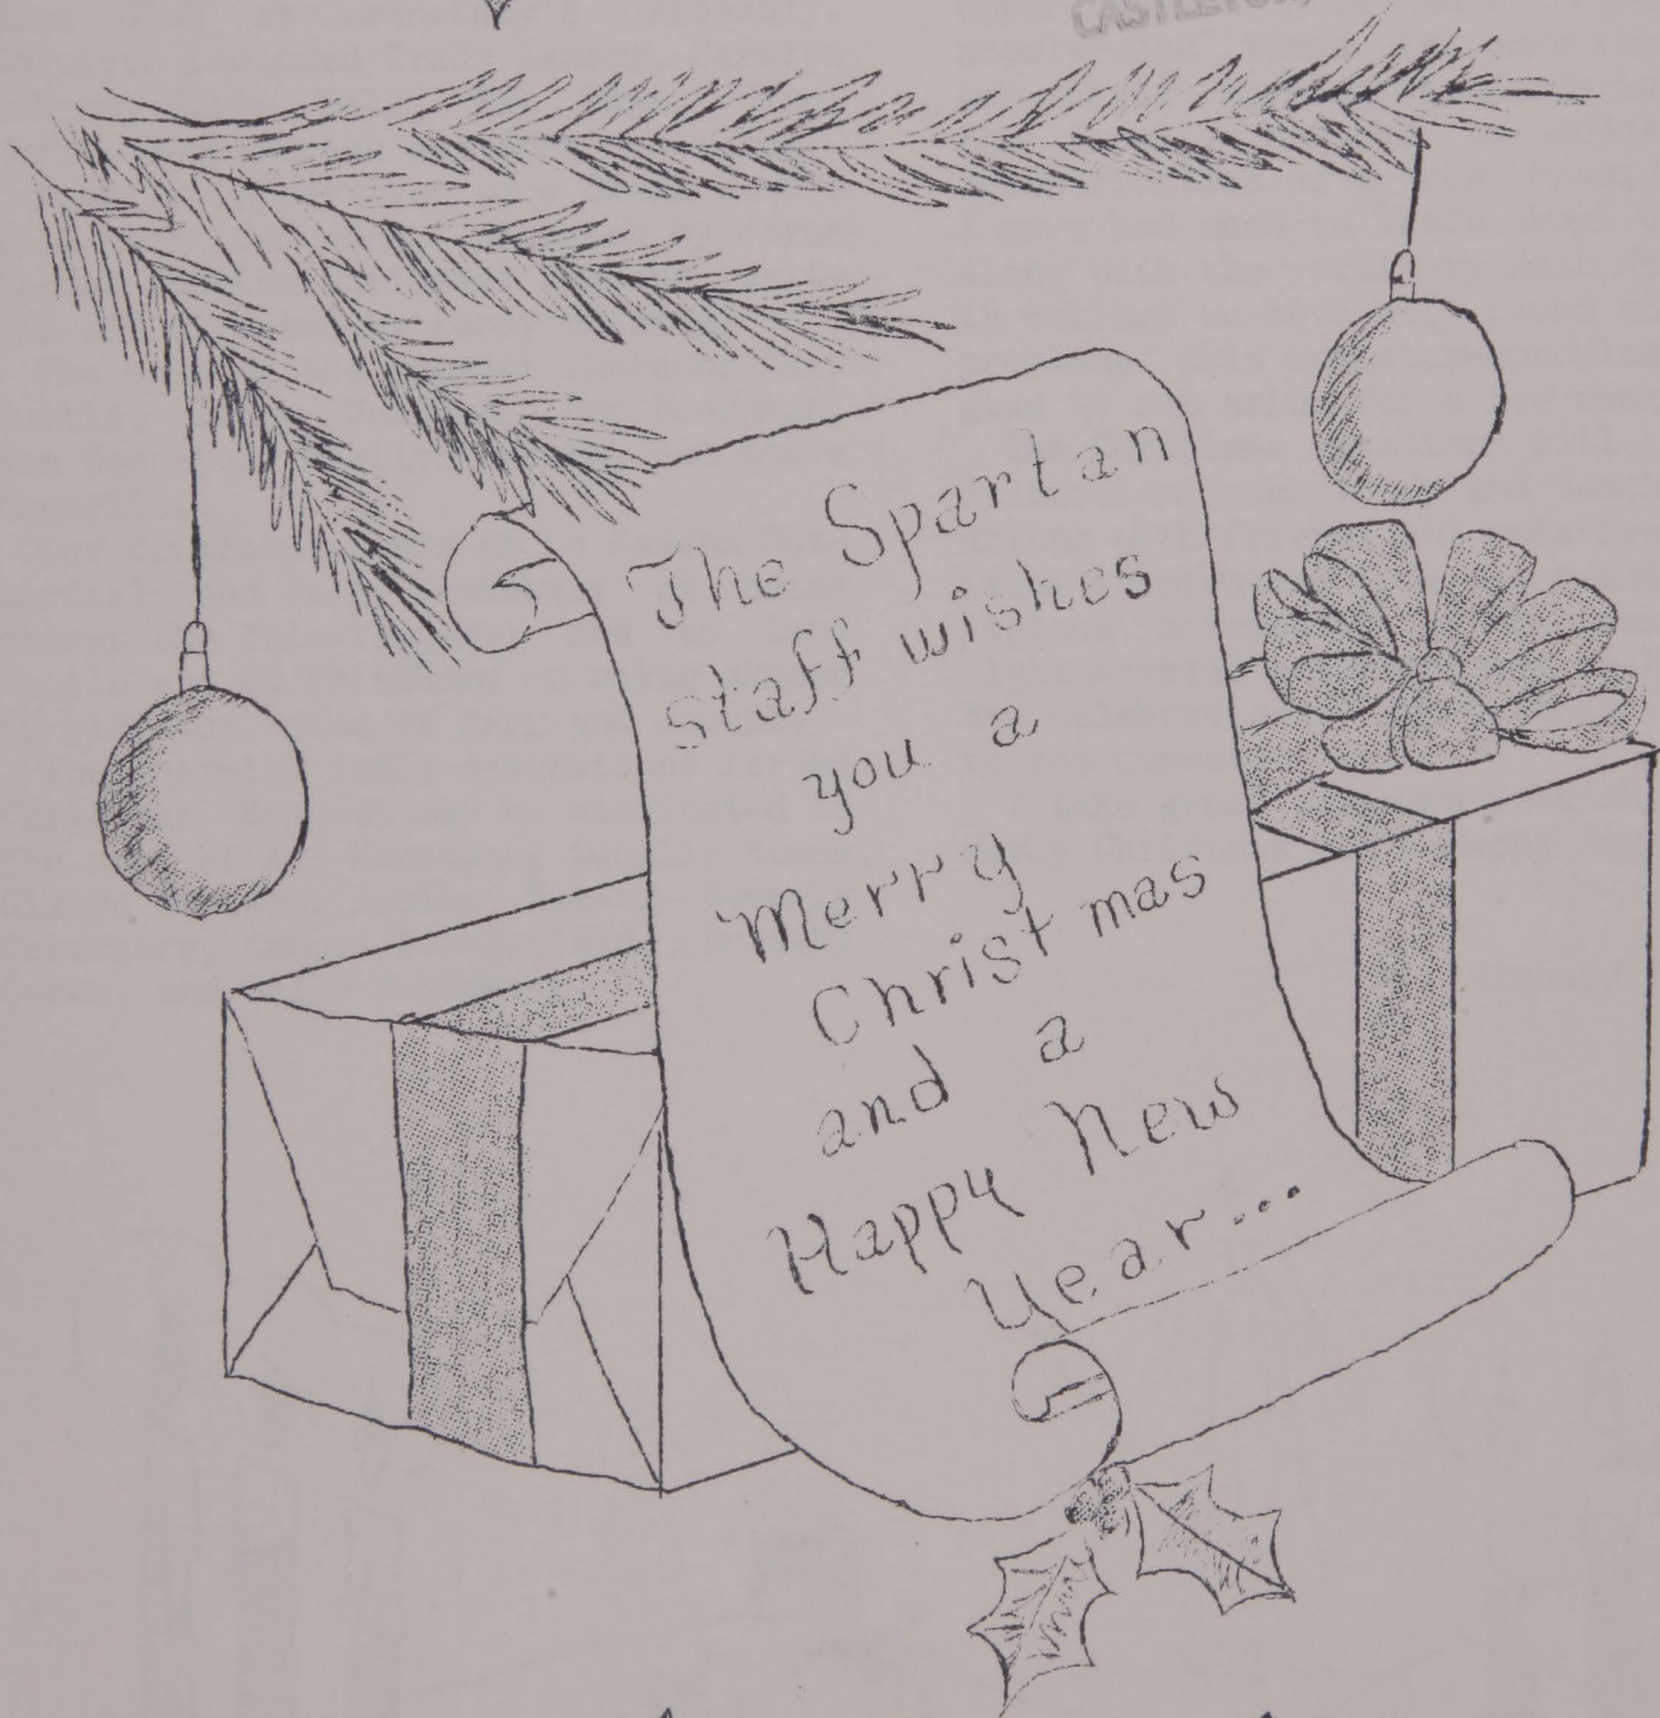 CASTLETON,
The Spartan
staff wishes
you a
Merry
Christmas
and a
Happy New
Year...